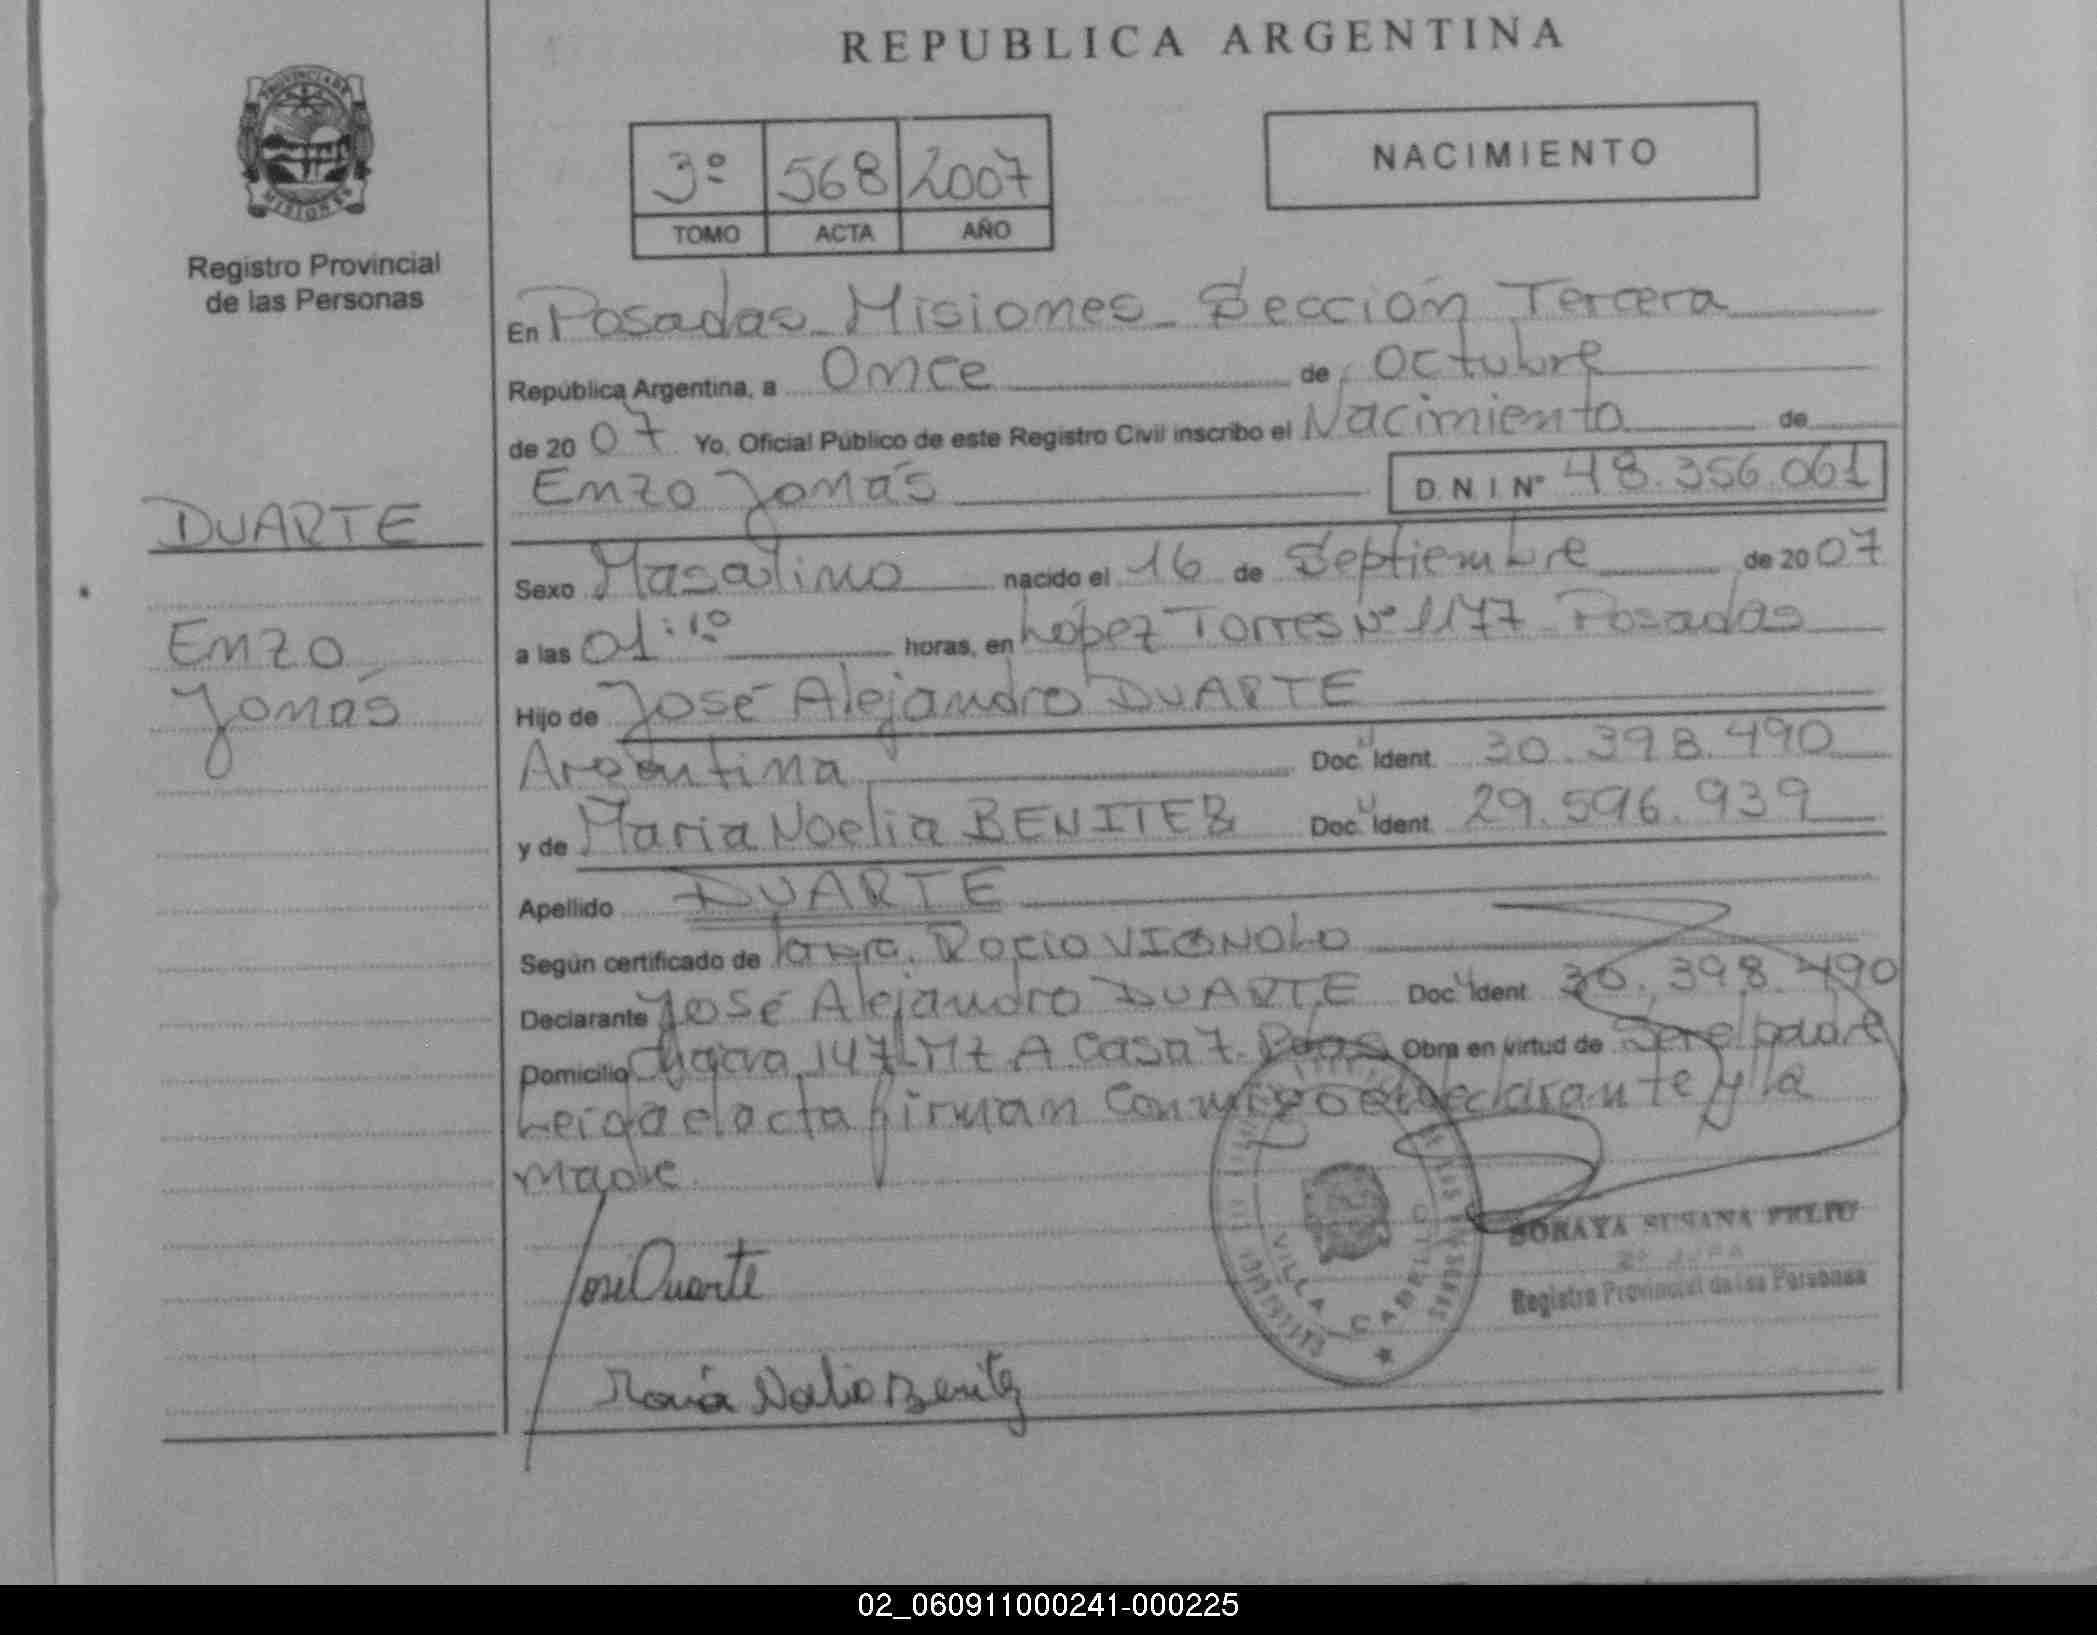 REPUBLICA ARGENTINA
PROVINCIA DE
MISIONES
Registro Provincial
de las Personas
3º 568 2007
TOMO ACTA AÑO
NACIMIENTO
En Posadas Misiones Sección Tercera
República Argentina, a Once de Octubre
de 2007 Yo, Oficial Público de este Registro Civil inscribo el Nacimiento de
Enzo Jonás D.N.I Nº 48.356.061
DUARTE
Enzo
Jonás
Sexo Masculino nacido el 16 de Septiembre de 2007
a las 01:10 horas, en López Torres Nº 1177 Posadas
Hijo de José Alejandro DUARTE
Argentina Doc. Ident. 30.398.490
y de Maria Noelia BENITEZ Doc. Ident. 29.596.939
Apellido DUARTE
Según certificado de Rocio VIGNOLO
Declarante José Alejandro DUARTE Doc. Ident. 30.398.490
Domicilio Chacra 147 Mz A Casa 7 Pdas Obra en virtud de Ser el padre
Leída el acta firman conmigo el declarante y la
madre
Jose Duarte
María Noelia Benitez
VILLA CABELLO
SORAYA SUSANA FELIU
Registro Provincial de las Personas
02_060911000241-000225